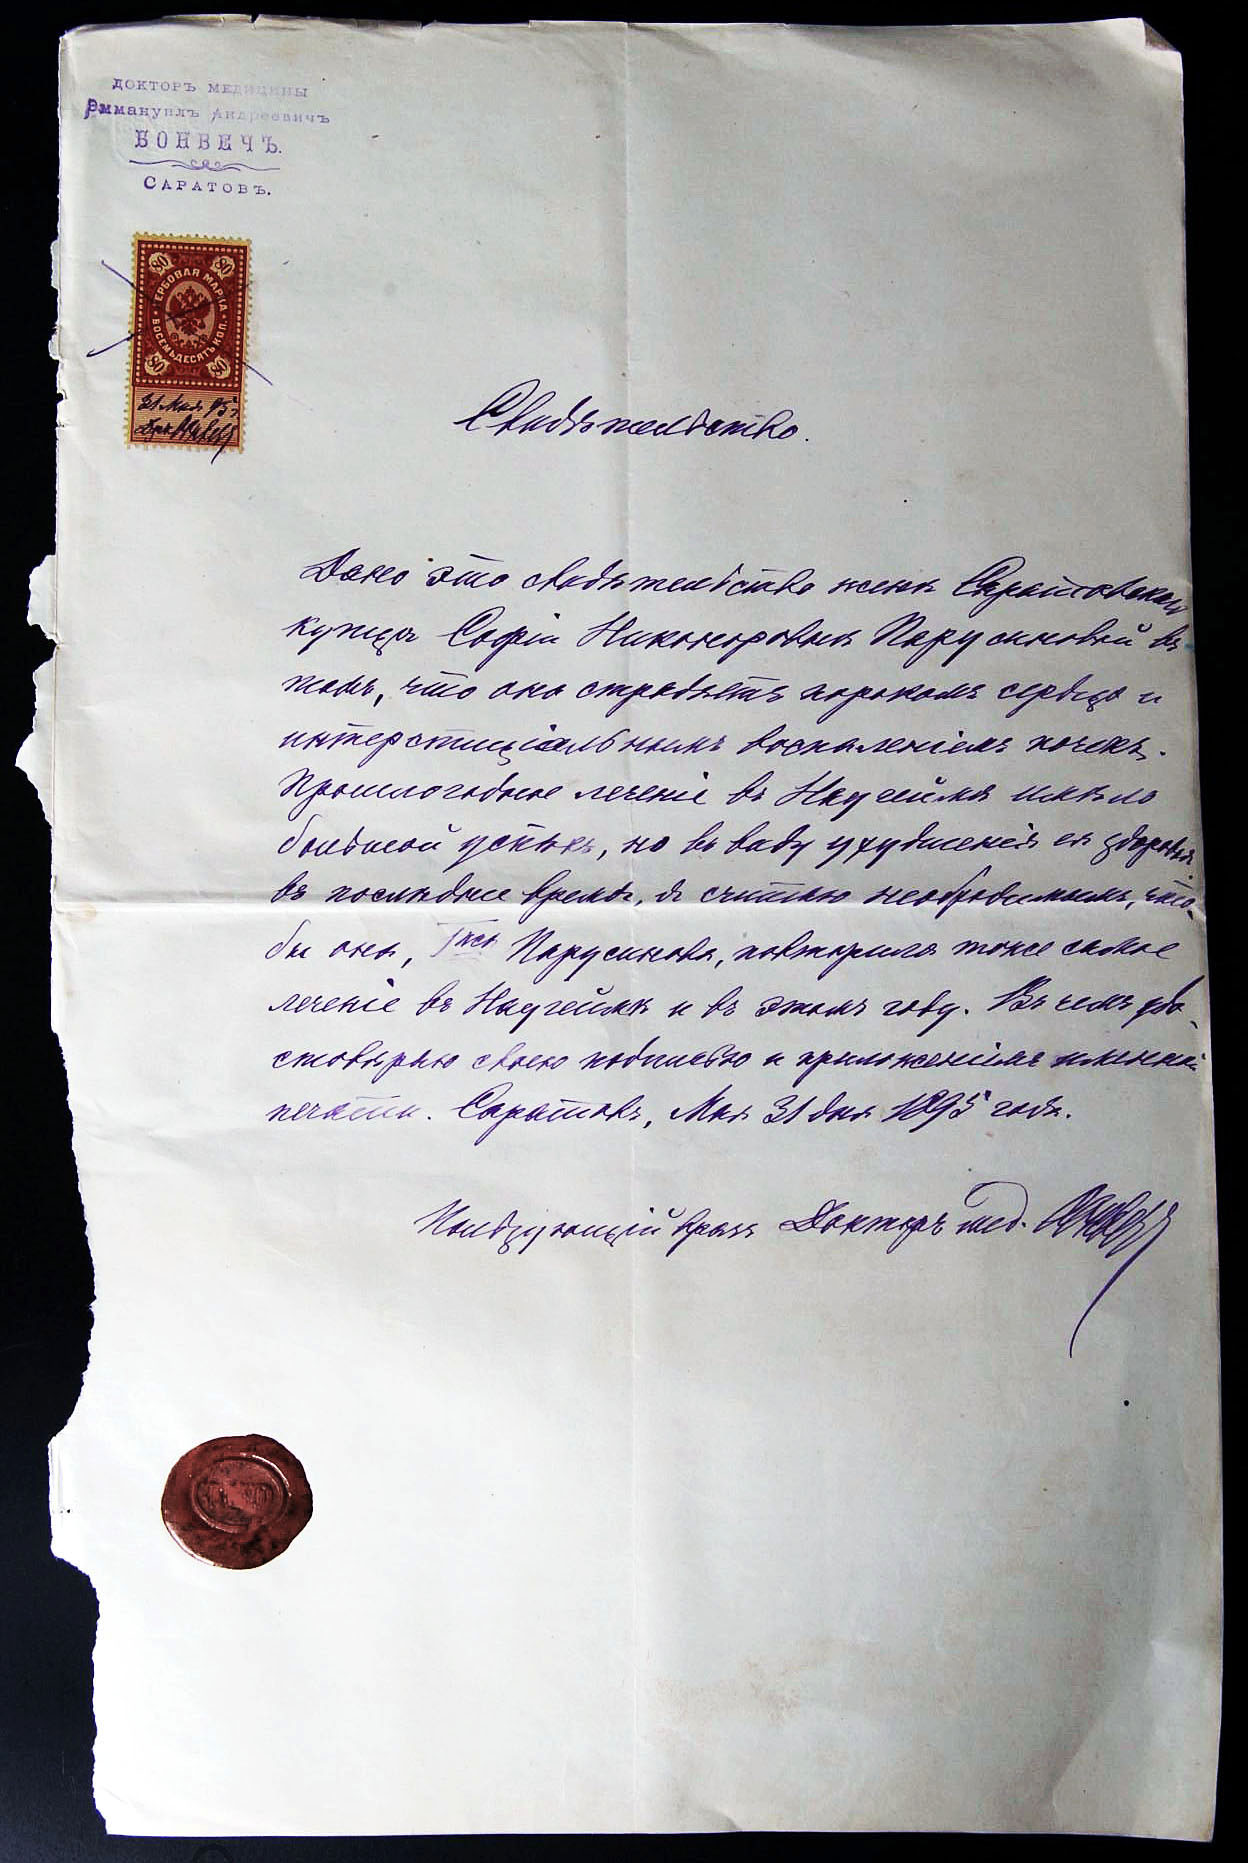 ДОКТОРЪ МЕДИЦИНЫ
Эммануилъ Андреевичъ
БОНВЕЧЪ.
САРАТОВЪ.
80 80
ГЕРБОВАЯ МАРКА
ВОСЕМЬДЕСЯТЪ КОП.
80 80
31 Мая 95 г.
Свидѣтельство.
Дано это свидѣтельство женѣ Саратовскаго
купца Софіи Никаноровнѣ Парусиновой въ
томъ, что она страдаетъ порокомъ сердца и
интерстиціальнымъ воспаленіемъ почекъ.
Прошлогоднее леченіе въ Наугеймѣ имѣло
большой успѣхъ, но въ виду ухудшенія ея здоровья
въ послѣднее время, я считаю необходимымъ, что-
бы она, Гжа Парусинова, повторила тоже самое
леченіе въ Наугеймѣ и въ этомъ году. Въ чемъ удо-
стовѣряю своею подписью и приложеніемъ именной
печати. Саратовъ, Мая 31 дня 1895 года.
Пользующій врачъ Докторъ мед.